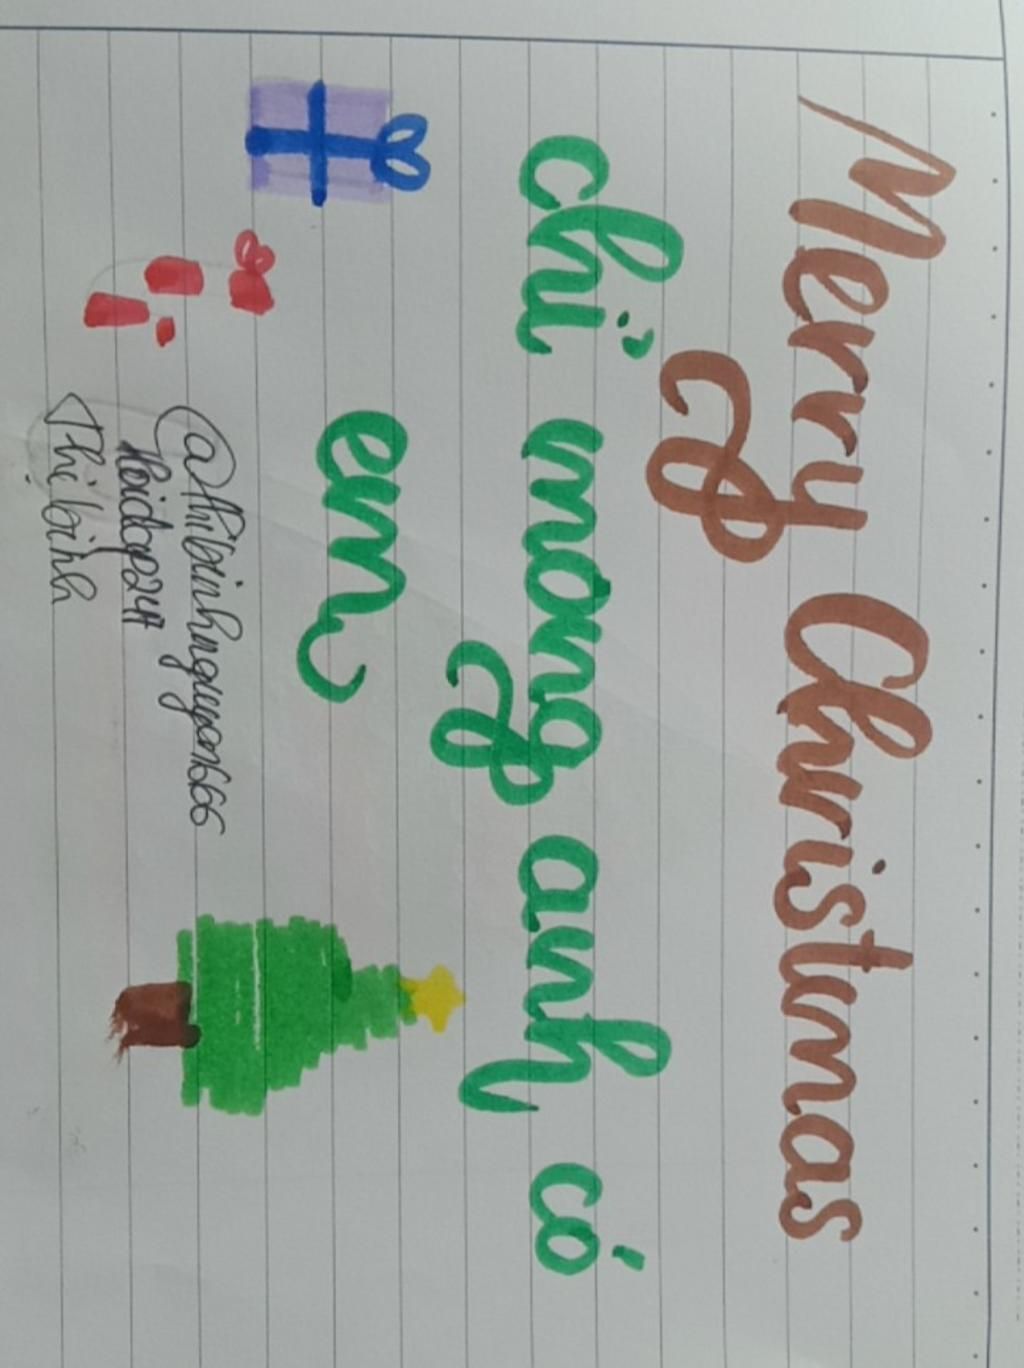 Merry Christmas
chỉ mong anh có
em
@thibinhnguyen666
Hoidap247
Thị bình